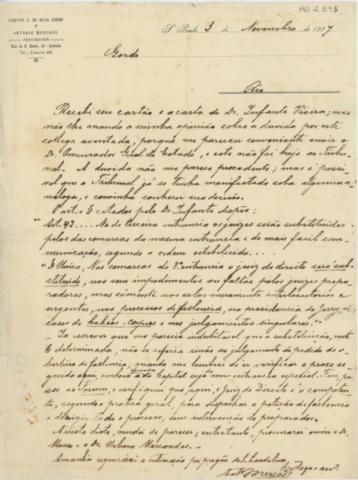 AG 2595
ADOLPHO A. DA SILVA GORDO
E
ANTONIO MERCADO
ADVOGADOS
Rua de S. Bento, 45 - Sobrado
S. Paulo 3 de Novembro de 1907
Gordo
Rio
Recebi seu cartão e a carta do Dr. Infante Vieira; mas
não lhe mando a minha opinião sobre a duvida por este
collega aventada, porque me pareceu conveniente ouvir o
Dr. Procurador Geral do Estado, e este não foi hoje ao Tribu-
nal. A duvida não me parece procedente; mas é possi-
vel que o Tribunal já se tenha manifestado sobre alguma a-
naloga, e convinha conhecer sua decisão.
O art. citado pelo Dr. Infante dispõe:
"Art. 42... Na de terceira entrancia os juizes serão substituidos
pelos das comarcas da mesma entrancia e de mais facil com-
municação, segundo a ordem estabelecida...
"§ Unico. Nas comarcas de 3ª entrancia o juiz de direito será sub-
stituido, nos seus impedimentos ou faltas pelos juizes prepa-
radores, mas sómente nos actos meramente interlocutorios e
urgentes, nos processos de fallencia, na presidencia do jury, em
casos de habeas-corpus e nos julgamentos singulares."
Ia escrever que me parecia indubitavel que a substituição, assim
determinada, não se referia senão ao julgamento do pedido de a-
bertura de fallencia, quando me lembrei de ir verificar o processo
, segundo a pratica geral, para despachar a petição de fallencia
e dirigir todo o processo, sem intervenção do preparador.
A vista disto, mudei de parecer; entretanto, procurarei ouvir o Dr.
e o Dr. Urbano Marcondes.
Amanhã requererei a intimação